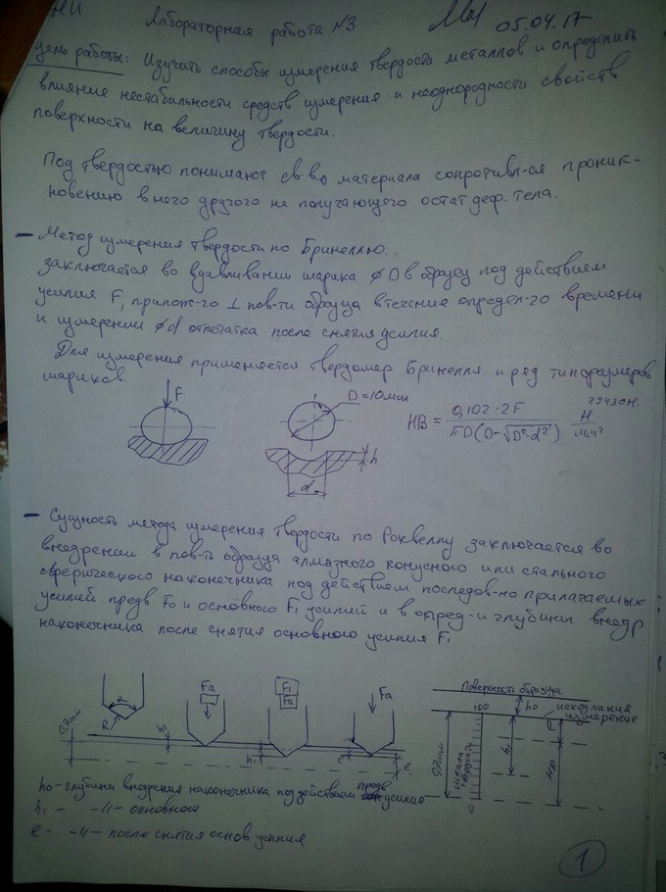 НИ
Лабораторная работа №3
05.04.17
Цель работы: Изучить способы измерения твердости металлов и определить
влияние нестабильности средств измерения и неоднородности свойств
поверхности на величину твердости.
Под твердостью понимают св-во материала сопротивл-ся проник-
новению в него другого не получающего остат деф. тела.
– Метод измерения твердости по Бринеллю.
заключается во вдавливании шарика ⌀D в образец под действием
усилия F, прилож-го ⊥ пов-ти образца в течение определ-го времени
и измерении ⌀d отпечатка после снятия усилия.
Для измерения применяется твердомер Бринелля и ряд типоразмеров
шариков.
F
D=10мм
h
d
HB = 0,102·2F / πD(D-√D²-d²) Н/мм²
29430Н.
– Сущность метода измерения твердости по Роквеллу заключается во
внедрении в пов-ть образца алмазного конусного или стального
сферического наконечника под действием послед-но прилагаемых
усилий предв F0 и основного F1 усилий и в опред-и глубины внедр
наконечника после снятия основного усилия F1
α
R
0,2мм
F1
F0
h1
e
Поверхность образца
100
h0
исх линия
измерения
0,2мм
шкала
твердости
h1
e
HR
0
h0 - глубина внедрения наконечника под действием предв усилию
h1 - -//- основного
e - -//- после снятия основ усилия
1